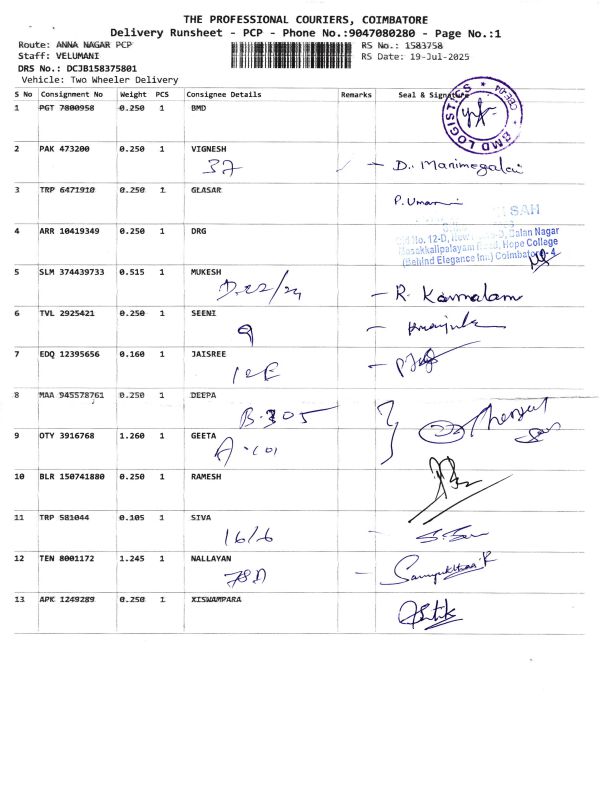 THE PROFESSIONAL COURIERS, COIMBATORE
Delivery Runsheet - PCP - Phone No.:9047080280 - Page No.:1
Route: ANNA NAGAR PCP RS No.: 1583758
Staff: VELUMANI RS Date: 19-Jul-2025
DRS No.: DCJB158375801
Vehicle: Two Wheeler Delivery
S No Consignment No Weight PCS Consignee Details Remarks Seal & Signature
1 PGT 7800958 0.250 1 BMD
BMD LOGISTICS * CBE-04 *
2 PAK 473200 0.250 1 VIGNESH
37 - D. Manimegalai
3 TRP 6471910 0.250 1 GLASAR
P. Umarani
SAH
4 ARR 10419349 0.250 1 DRG
Old No. 12-D, New Balan Nagar
Masakkalipalayam Road, Hope College
(Behind Elegance Inn) Coimbatore-4
5 SLM 374439733 0.515 1 MUKESH
D-22/24 - R. Kamalam
6 TVL 2925421 0.250 1 SEENI
9 -
7 EDQ 12395656 0.160 1 JAISREE
-
8 MAA 945578761 0.250 1 DEEPA
B-305
9 OTY 3916768 1.260 1 GEETA
A-101
10 BLR 150741880 0.250 1 RAMESH
11 TRP 581044 0.105 1 SIVA
16/6 -
12 TEN 8001172 1.245 1 NALLAYAN
78D -
13 APK 1249289 0.250 1 XISWAMPARA